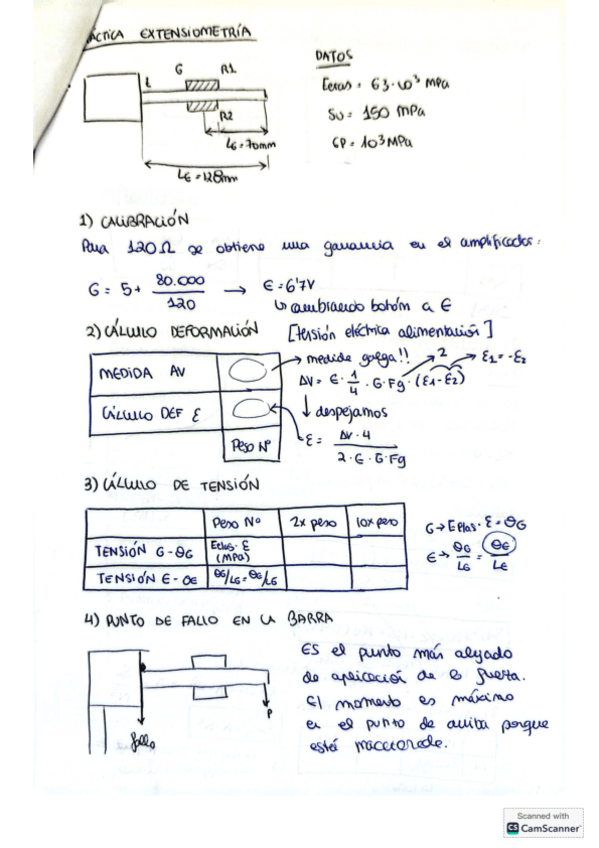 ÁCTICA EXTENSIOMETRÍA
DATOS
G R1
R2
LG = 70mm
LE = 128mm
= 63·10³ MPa
Su = 150 MPa
= 10³ MPa
1) CALIBRACIÓN
Para 120Ω se obtiene una ganancia en el amplificador:
G = 5 + 80.000 / 120 → E = 6'7V
↳ cambiando botón a E
2) CÁLCULO DEFORMACIÓN [tensión eléctrica alimentación]
MEDIDA ΔV → medida galga!!
2 → ε1 = -ε2
ΔV = E · 1/4 · G · Fg · (ε1 - ε2)
CÁLCULO DEF ε
↓ despejamos
PESO Nº
ε = ΔV · 4 / 2 · E · G · Fg
3) CÁLCULO DE TENSIÓN
Peso Nº 2x peso 10x peso
TENSIÓN G - σG ε (MPa)
TENSIÓN E - σE σG/LG = σE/LE
G → Eplas · ε = σG
E → σG / LG = σE / LE
4) PUNTO DE FALLO EN LA BARRA
Es el punto más alejado
de aplicación de la fuerza.
El momento es máximo
en el punto de arriba porque
está
P
fallo
Scanned with
CS CamScanner